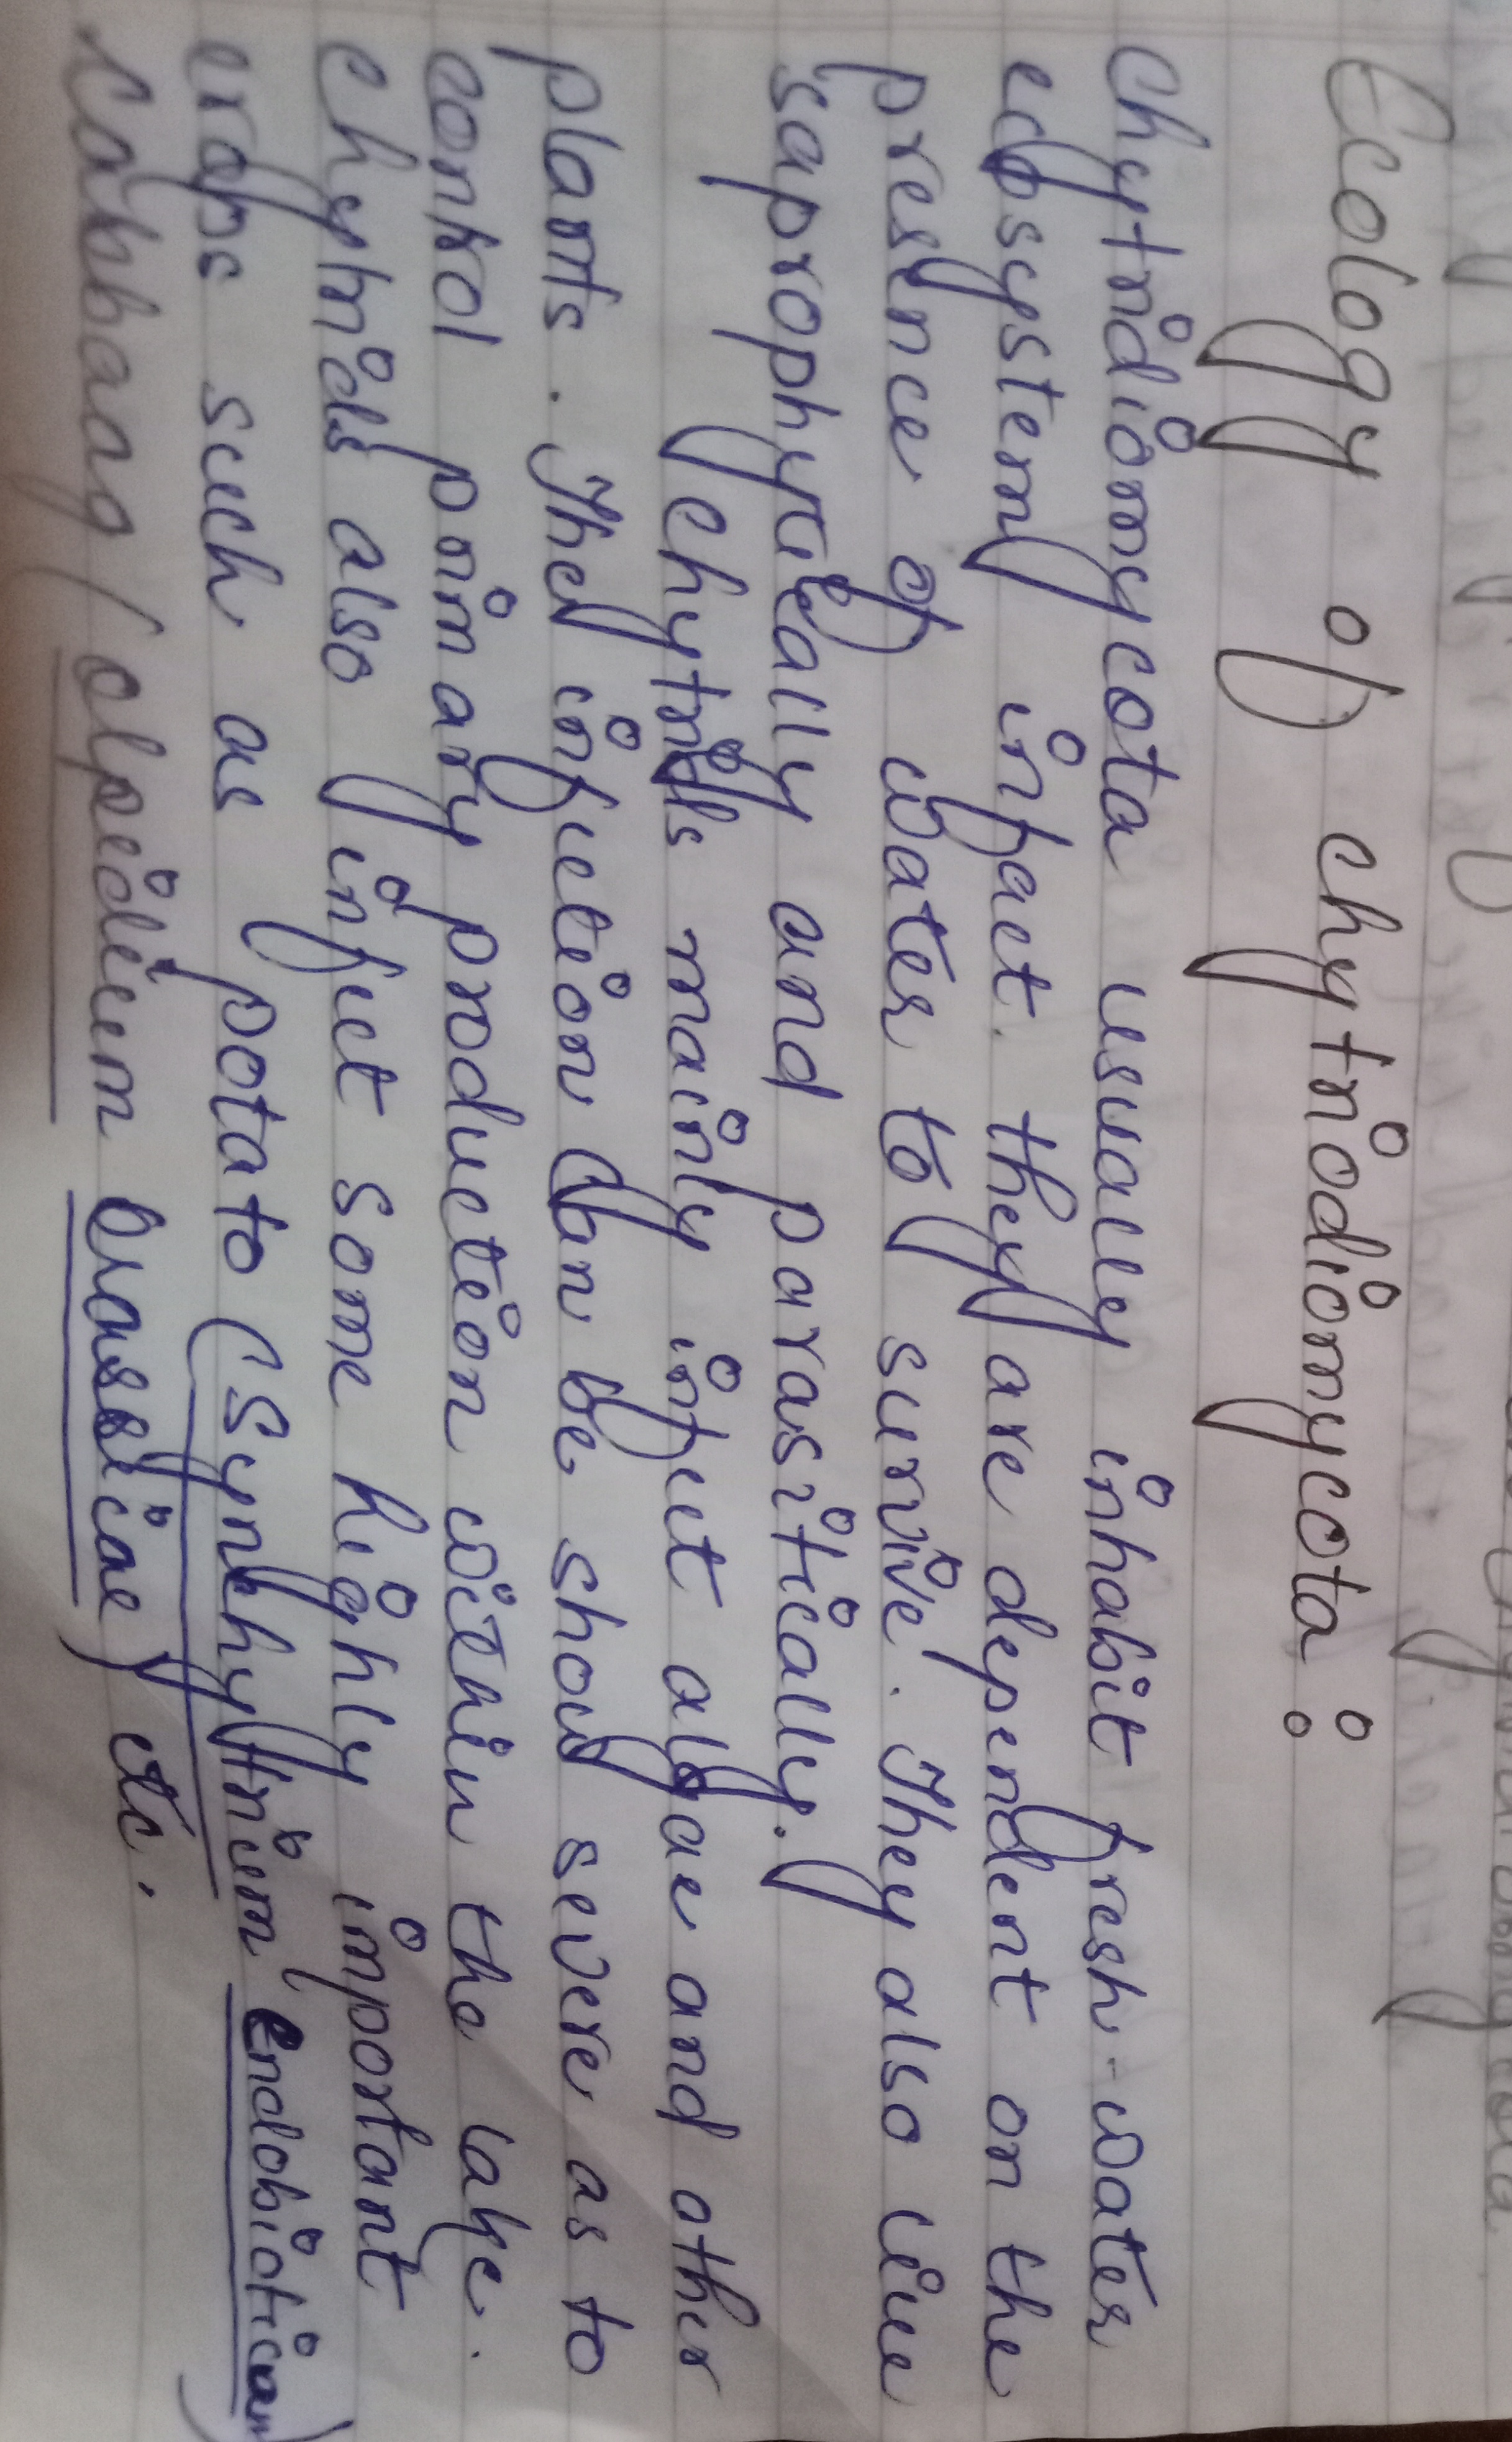 Ecology of chytriodiomycota :
chytridiomycota usually inhabit fresh-water
ecosystem infact. they are dependent on the
presence of water to survive. They also live
saprophytically and parasitically.
chytrids mainly infect algae and other
plants. The infection can be show severe as to
control primary production within the lake.
chytrids also infect some highly inportant
crops such as potato (Synchytrium endobioticum)
cabbaag (olpidium brassicae) etc.